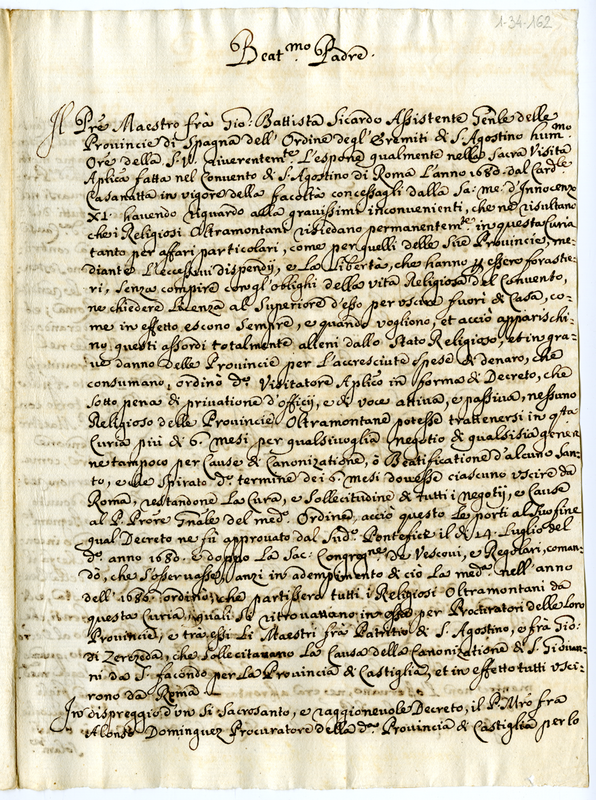 1-34-162
Beat.mo Padre.
Il Prẽ Maestro frà Gio: Battista Sicardo Assistente Gñle delle
Provincie di Spagna dell'Ordine degl'Eremiti di S. Agostino hum.mo
Orẽ della S.V. riverentem.te L'espone qualmente nella Sacra Visita
Aplica fatta nel Convento di S. Agostino di Roma L'anno 1680. dal Card.le
Casanatta in vigore della facoltà concessagli dalla Sa: me: d'Innocenzo
XI. havendo riguardo alla gravissimi inconvenienti, che ne risultano
che i Religiosi Oltramontani risiedano permanentem.te in questa Curia
tanto per affari particolari, come per quelli delle Sue Provincie, me-
diante L'eccessivi dispendij, e La libertà, che hanno p essere foraste-
ri, senza compire con gl'oblighi della vita Religiosa del Convento,
ne chiedere Licenza al Superiore d'esso per uscire fuori di Casa, co-
me in effetto escono Sempre, e quando vogliono, et acciò apparischi-
no questi assordi totalmente alieni dallo Stato Religioso, et in gra-
ve danno delle Provincie per L'accresciute spese di denaro, che
consumano, ordinò d.o Visitatore Aplico in forma di Decreto, che
sotto pena di privatione d'officij, e di voce attiva, e passiva, nessuno
Religioso delle Provincie Oltramontane potesse trattenersi in q.ta
Curia più di 6. mesi per qualsivoglia negotio di qualsisia genere
ne tampoco per Cause di Canonizatione, ò Beatificatione d'alcuno San-
to, e che spirato d.o termine dei 6. mesi dovesse ciascuno uscire da
Roma, restandone La cura, e sollecitudine di tutti i negotij, e Cause
al P. Prorẽ Gñale del med.o Ordine, acciò questo le porti al suo fine
qual Decreto ne fù approvato dal Sud.o Pontefice il dì 14. Luglio del
d.o anno 1680. e doppo La Sac: Congreg.ne de Vescovi, e Regolari, coman-
dò, che s'osservasse, anzi in adempimento di ciò La med.a nell'anno
dell'1686. ordinò, che partissero tutti i Religiosi Oltramontani da
questa Curia, quali si ritrovattano in essa per Procuratori delle Loro
Provincie, e trà essi Li Maestri frà Patritio di S. Agostino, e frà Gio:
di Zerezeda, che sollecitavano La Causa della Canonizatione di S. Giovan-
ni da S. facondo per La Provincia di Castiglia, et in effetto tutti usci-
rono da Roma
In dispreggio d'un Si Sacrosanto, e raggionevole Decreto, il P. Mrõ frà
Alonso Dominguez Procuratore della d.a Provincia di Castiglia per lo